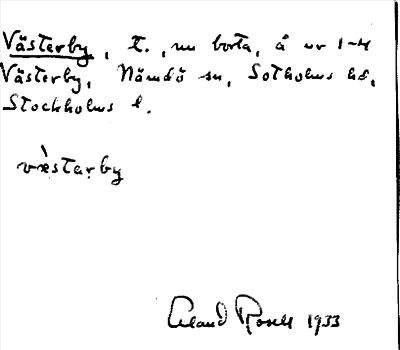 Västerby, t., nu borta, å nr 1-4
Västerby, Nämdö sn, Sotholms hd,
Stockholms l.
væ̀stạrby
Erland Rosell 1933